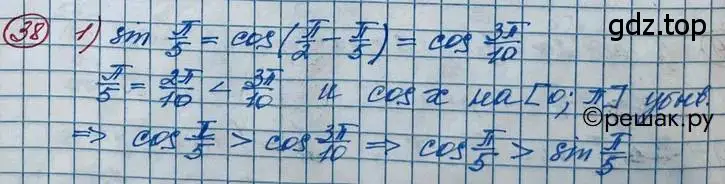 38 1) sin π/5 = cos(π/2 - π/5) = cos 3π/10
gdz.top
π/5 = 2π/10 < 3π/10 и cos x на [0; π] убыв.
©решак.ру
⇒ cos π/5 > cos 3π/10 ⇒ cos π/5 > sin π/5